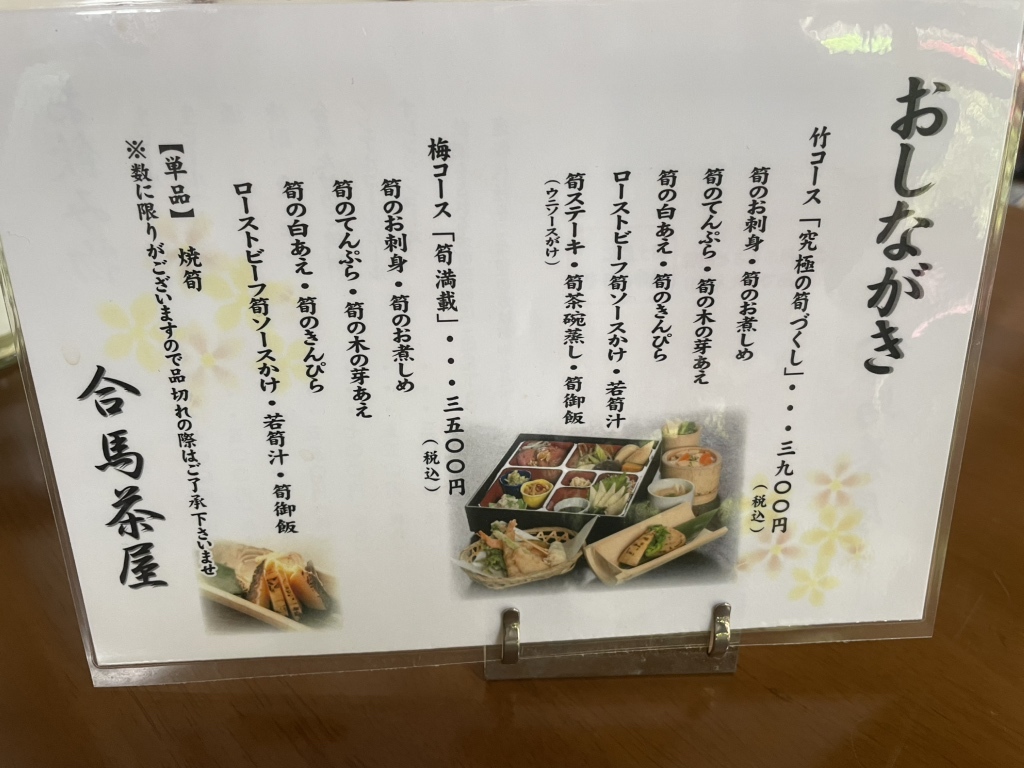 おしながき
竹コース「究極の筍づくし」・・・三九〇〇円
（税込）
筍のお刺身・筍のお煮しめ
筍のてんぷら・筍の木の芽あえ
筍の白あえ・筍のきんぴら
ローストビーフ筍ソースかけ・若筍汁
筍ステーキ・筍茶碗蒸し・筍御飯
（ウニソースがけ）
梅コース「筍満載」・・・三五〇〇円
（税込）
筍のお刺身・筍のお煮しめ
筍のてんぷら・筍の木の芽あえ
筍の白あえ・筍のきんぴら
ローストビーフ筍ソースかけ・若筍汁・筍御飯
【単品】 焼筍
※数に限りがございますので品切れの際はご了承下さいませ
合馬茶屋